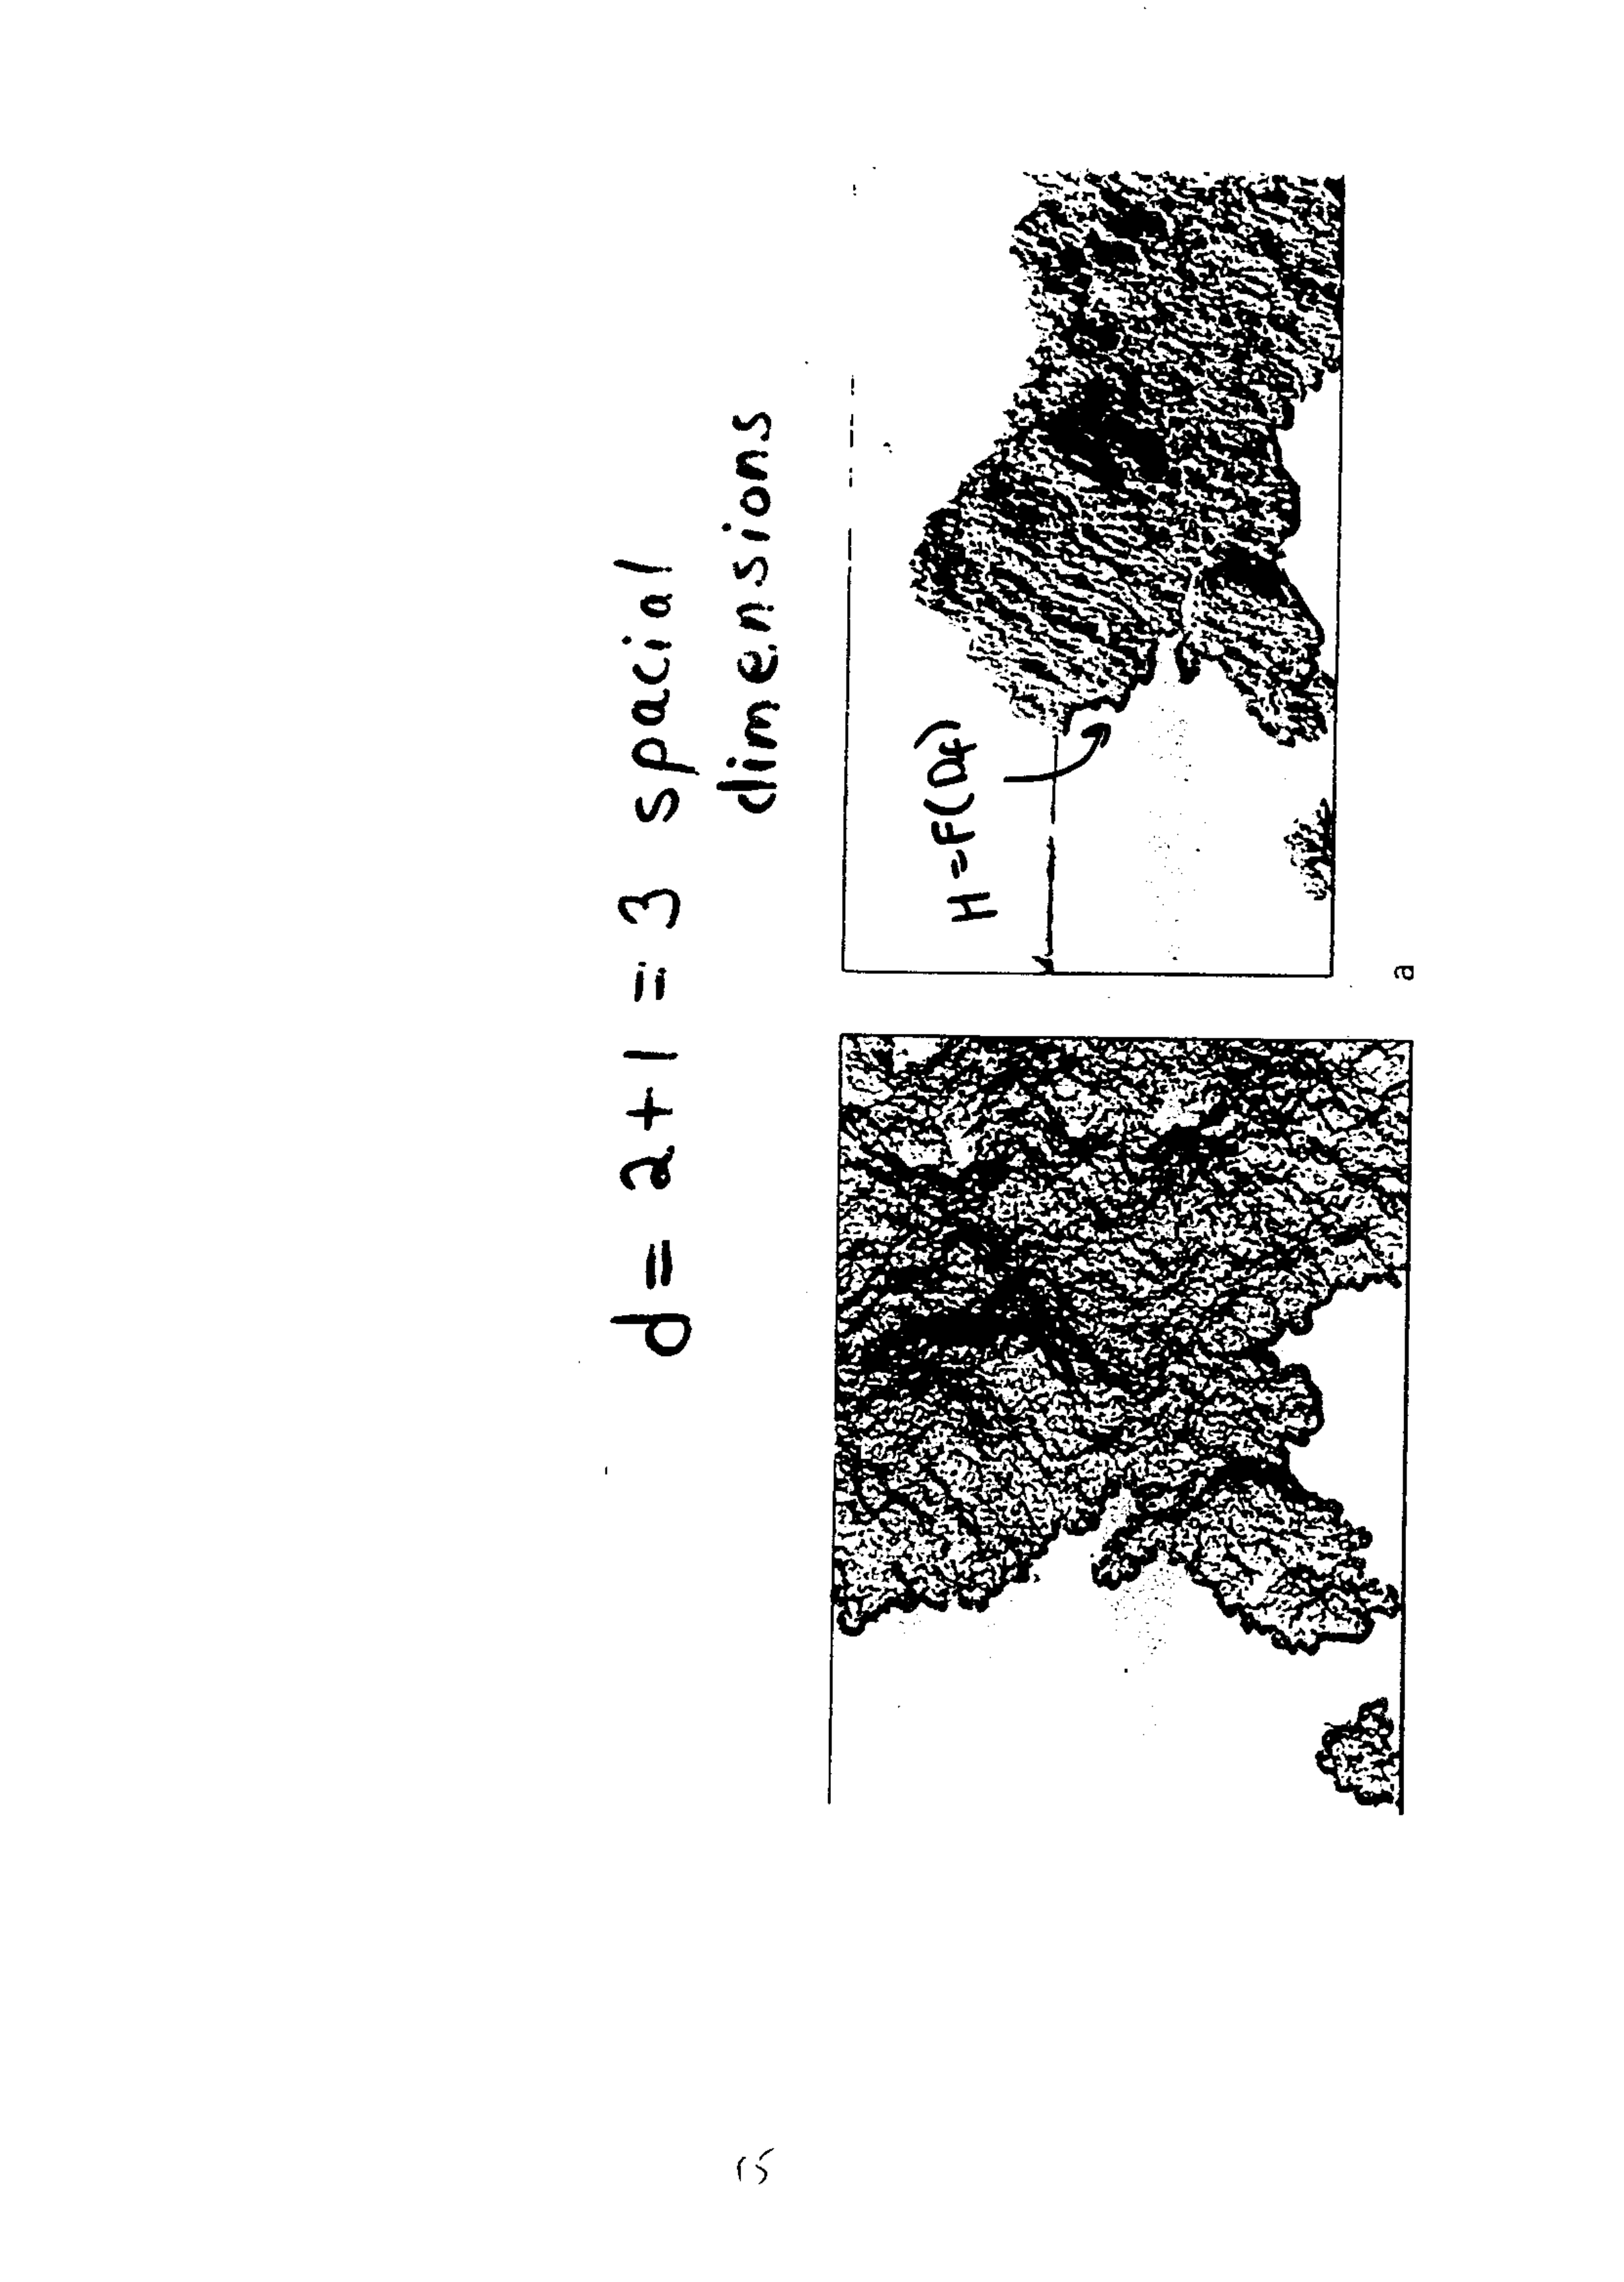 d = 2 + 1 = 3 spacial
dimensions
H = F(Df)
a
15